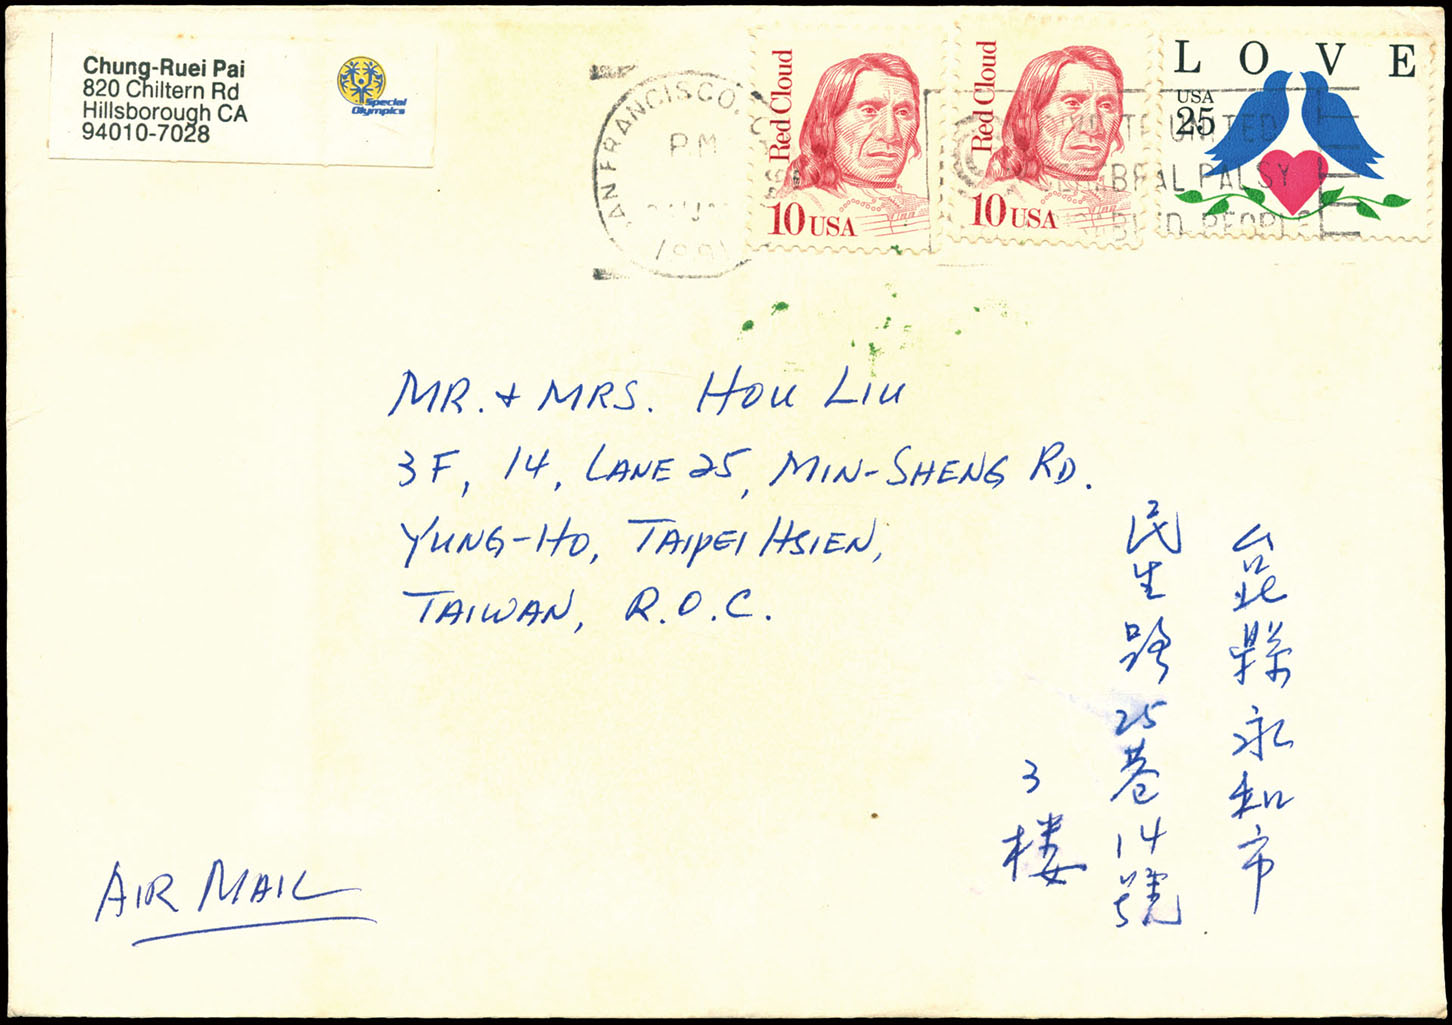 Chung-Ruei Pai
820 Chiltern Rd
Hillsborough CA
94010-7028
Special
Olympics
SAN FRANCISCO, CA
PM
1991
Red Cloud
10 USA
Red Cloud
10 USA
LOVE
USA
25
UNITED
CEREBRAL PALSY
PEOPLE
MR. & MRS. HOU LIU
3F, 14, LANE 25, MIN-SHENG RD.
YUNG-HO, TAIPEI HSIEN,
TAIWAN, R.O.C.
台北縣永和市
民生路25巷14號
3楼
AIR MAIL